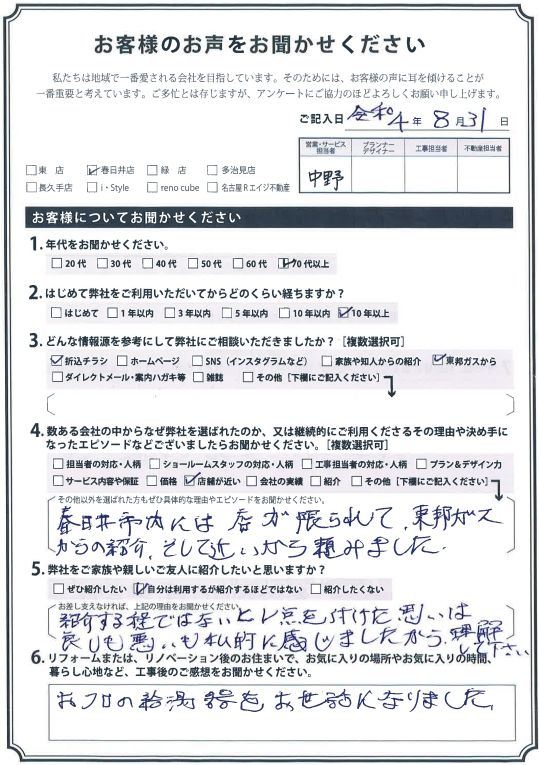 お客様のお声をお聞かせください
私たちは地域で一番愛される会社を目指しています。そのためには、お客様の声に耳を傾けることが
一番重要と考えています。ご多忙とは存じますが、アンケートにご協力のほどよろしくお願い申し上げます。
ご記入日 令和4年8月31日
営業・サービス担当者 プランナーデザイナー 工事担当者 不動産担当者
中野
□東 店 ☑春日井店 □緑 店 □多治見店
□長久手店 □i・Style □reno cube □名古屋Rエイジ不動産
お客様についてお聞かせください
1.年代をお聞かせください。
□20代 □30代 □40代 □50代 □60代 ☑70代以上
2.はじめて弊社をご利用いただいてからどのくらい経ちますか？
□はじめて □1年以内 □3年以内 □5年以内 □10年以内 ☑10年以上
3.どんな情報源を参考にして弊社にご相談いただきましたか？［複数選択可］
☑折込チラシ □ホームページ □SNS（インスタグラムなど） □家族や知人からの紹介 ☑東邦ガスから
□ダイレクトメール・案内ハガキ等 □雑誌 □その他［下欄にご記入ください］
4.数ある会社の中からなぜ弊社を選ばれたのか、又は継続的にご利用くださるその理由や決め手に
なったエピソードなどございましたらお聞かせください。［複数選択可］
□担当者の対応・人柄 □ショールームスタッフの対応・人柄 □工事担当者の対応・人柄 □プラン＆デザイン力
□サービス内容や保証 □価格 ☑店舗が近い □会社の実績 □紹介 □その他［下欄にご記入ください］
その他以外を選ばれた方もぜひ具体的な理由やエピソードをお聞かせください。
春日井市内には店が限られて、東邦ガス
からの紹介、そして近いから頼みました。
5.弊社をご家族や親しいご友人に紹介したいと思いますか？
□ぜひ紹介したい ☑自分は利用するが紹介するほどではない □紹介したくない
お差し支えなければ、上記の理由をお聞かせください
紹介する程ではないとレ点を付けた思いは
良しも悪いも私的に感じましたから、理解
して下さい
6.リフォームまたは、リノベーション後のお住まいで、お気に入りの場所やお気に入りの時間、
暮らし心地など、工事後のご感想をお聞かせください。
おフロの給湯器をお世話になりました。